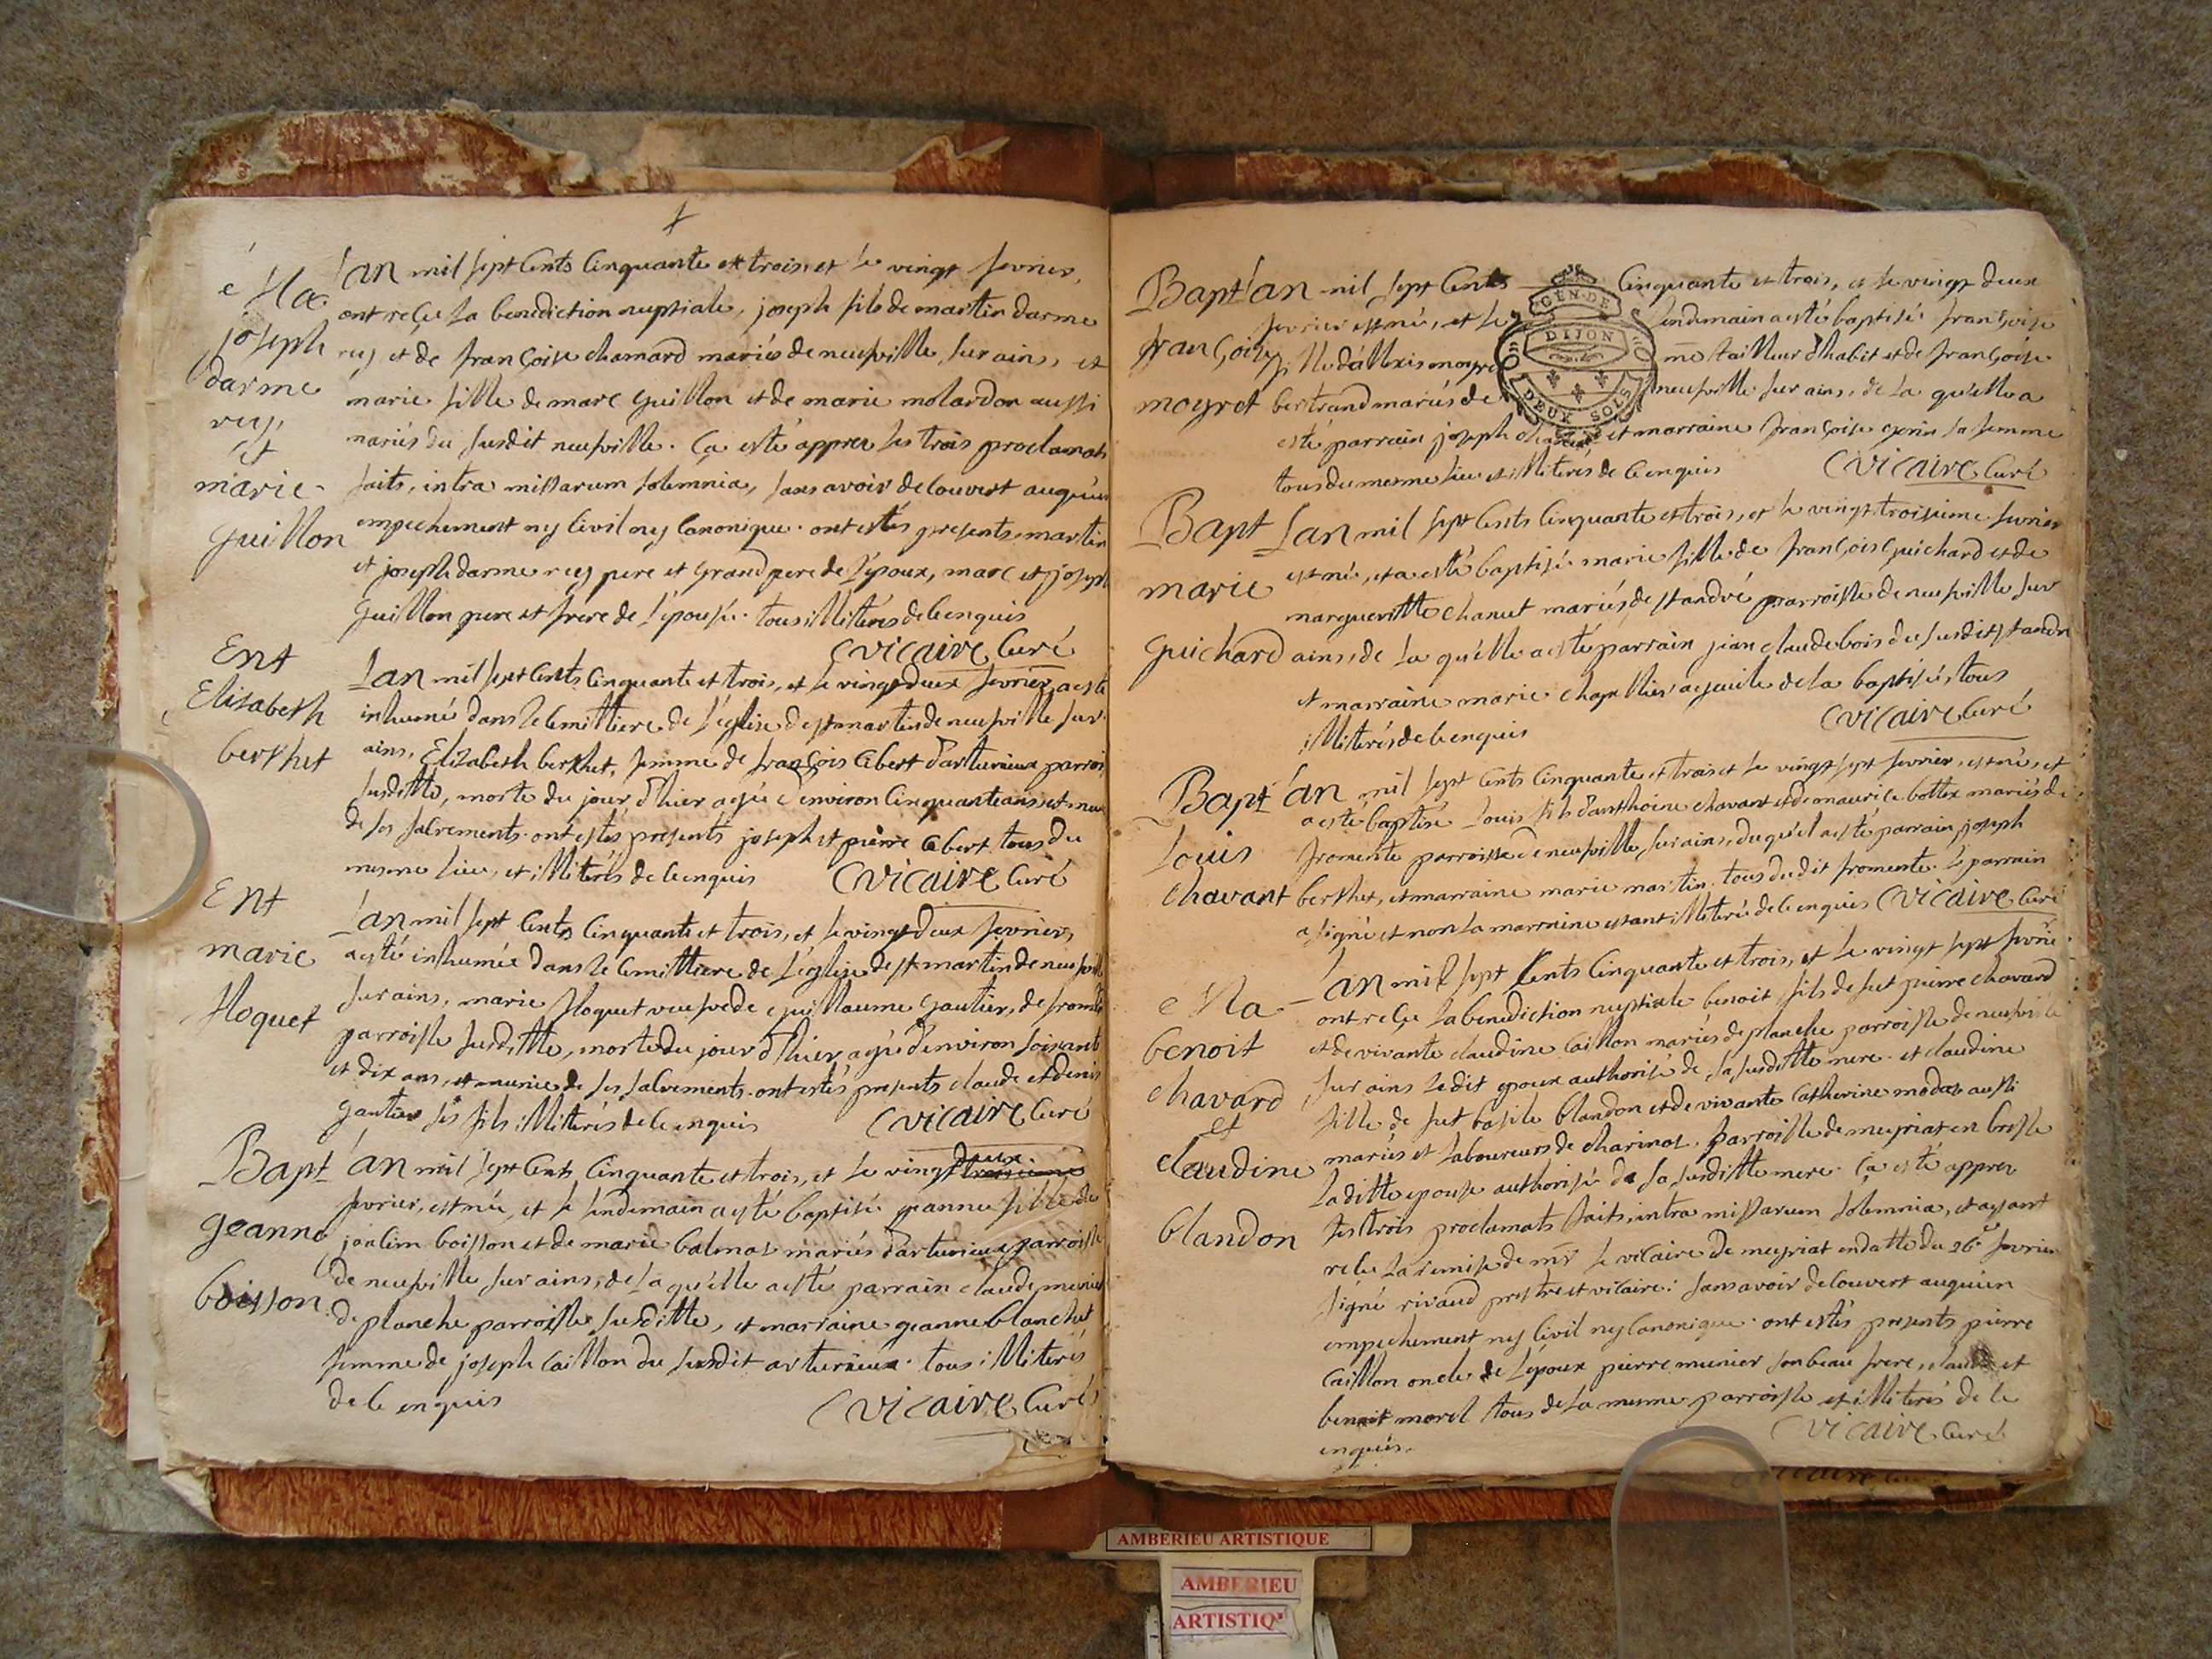 Ma
joseph
darme
rey
et
marie
guillon
Lan mil sept Cents Cinquante et trois, et le vingt fevrier,
ont reçu la benediction nuptiale, joseph fils de martin darme
rey et de françoise chamard mariés de neufville sur ains, et
marie fille de marc guillon et de marie molardon aussi
mariés du susdit neufville. Ça esté apprez les trois proclamats
faits, intra missarum solemnia, sans avoir decouvert auqu'un
empechement ny Civil ny Canonique. ont estés presents martin
et joseph darme rey pere et grand pere de l'époux, marc et joseph
guillon pere et frere de l'épouse. tous illiterés de ce enquis
Vicaire Curé
Ent
Elisabeth
berthet
Lan mil sept Cents Cinquante et trois, et le vingt deux fevrier, a esté
inhumé dans le Cemittiere de l'eglise de st martin de neufville sur
ains, Elizabeth berthet, femme de françois Ebert d'arturieux parrois
susditte, morte du jour d'hier agée d'environ Cinquante ans et mun
de ses sacrements. ont estés presents joseph et pierre Ebert tous du
mesme lieu, et illiterés de ce enquis Vicaire Curé
Ent
marie
floquet
Lan mil sept Cents Cinquante et trois, et le vingt deux fevrier,
a esté inhumée dans le Cemittiere de l'eglise de st martin de neufville
sur ains, marie floquet veufve de guillaume gautier, de fromte
parroisse susditte, morte du jour d'hier agée d'environ soixante
et dix ans, et munie de ses sacrements. ont estés presents claude et denis
gautier ses fils illiterés de ce enquis Vicaire Curé
Bapt
geanne
boisson
Lan mil sept Cents Cinquante et trois, et le vingt deux troisieme
fevrier, est née, et le lendemain a esté baptisé geanne fille de
joacim boisson et de marie balmat mariés d'arturieux parroisse
de neufville sur ains, de la qu'elle a esté parrain claude munier
de planche parroisse susditte, et marraine geanne blanchet
femme de joseph Caillon du susdit arturieux. tous illiterés
de ce enquis Vicaire Curé
Bapt
françoise
moyret
Lan mil sept Cents Cinquante et trois, et le vingt deux
GEN DE
DIJON
DEUX SOLS
fevrier est né, et le lendemain a esté baptisé françoise
fille d'allexis moyre me tailleur d'habit et de françoise
bertrand mariés de neufville sur ains, de la qu'elle a
esté parrain joseph et marraine françoise sa femme
tous du mesme lieu et illiterés de ce enquis Vicaire Curé
Bapt
marie
guichard
Lan mil sept Cents Cinquante et trois, et le vingt troisieme fevrier
est né, et a esté baptisé marie fille de françois guichard et de
margueritte chanut mariés de st andré parroisse de neufville sur
ains, de la qu'elle a esté parrain jean claude bois du susdit st andre
et marraine marie chapellier ayeule de la baptisé, tous
illiterés de ce enquis Vicaire Curé
Bapt
Louis
Chavant
Lan mil sept Cents Cinquante et trois et le vingt sept fevrier, est né, et
a esté baptisé Louis fils d'anthoine chavant et de maurice bottex mariés de
fromente parroisse de neufville sur ains, du qu'el a esté parrain joseph
berthet, et marraine marie martin, tous du dit fromente. le parrain
a signé et non la marraine estant illiterée de ce enquis Vicaire Curé
Ma
benoit
chavard
et
claudine
blandon
Lan mil sept Cents Cinquante et trois, et le vingt sept fevrie
ont reçu la benediction nuptiale benoit fils de fut pierre chavard
et de vivante claudine Caillon mariés de planche parroisse de neufville
sur ains ledit epoux authorisé de sa susditte mere. et claudine
fille de fut basile blandon et de vivante Catherine modas aussi
mariés et laboureurs de charinat, parroisse de meyriat en bresse
laditte epouse authorisée de sa susditte mere. Ça esté apprez
les trois proclamats faits, intra missarum solemnia, et ayant
recu la remise de mr le vicaire de meyriat en datte du 26e fevrier
signé rivaud prestre et vicaire: sans avoir decouvert auqu'un
empechement ny Civil ny Canonique. ont estés presents pierre
Caillon oncle de l'époux pierre munier son beau frere, claude et
benoit morel tous de la mesme parroisse et illiterés de ce
enquis. Vicaire Curé
AMBERIEU ARTISTIQUE
AMBERIEU
ARTISTIQ